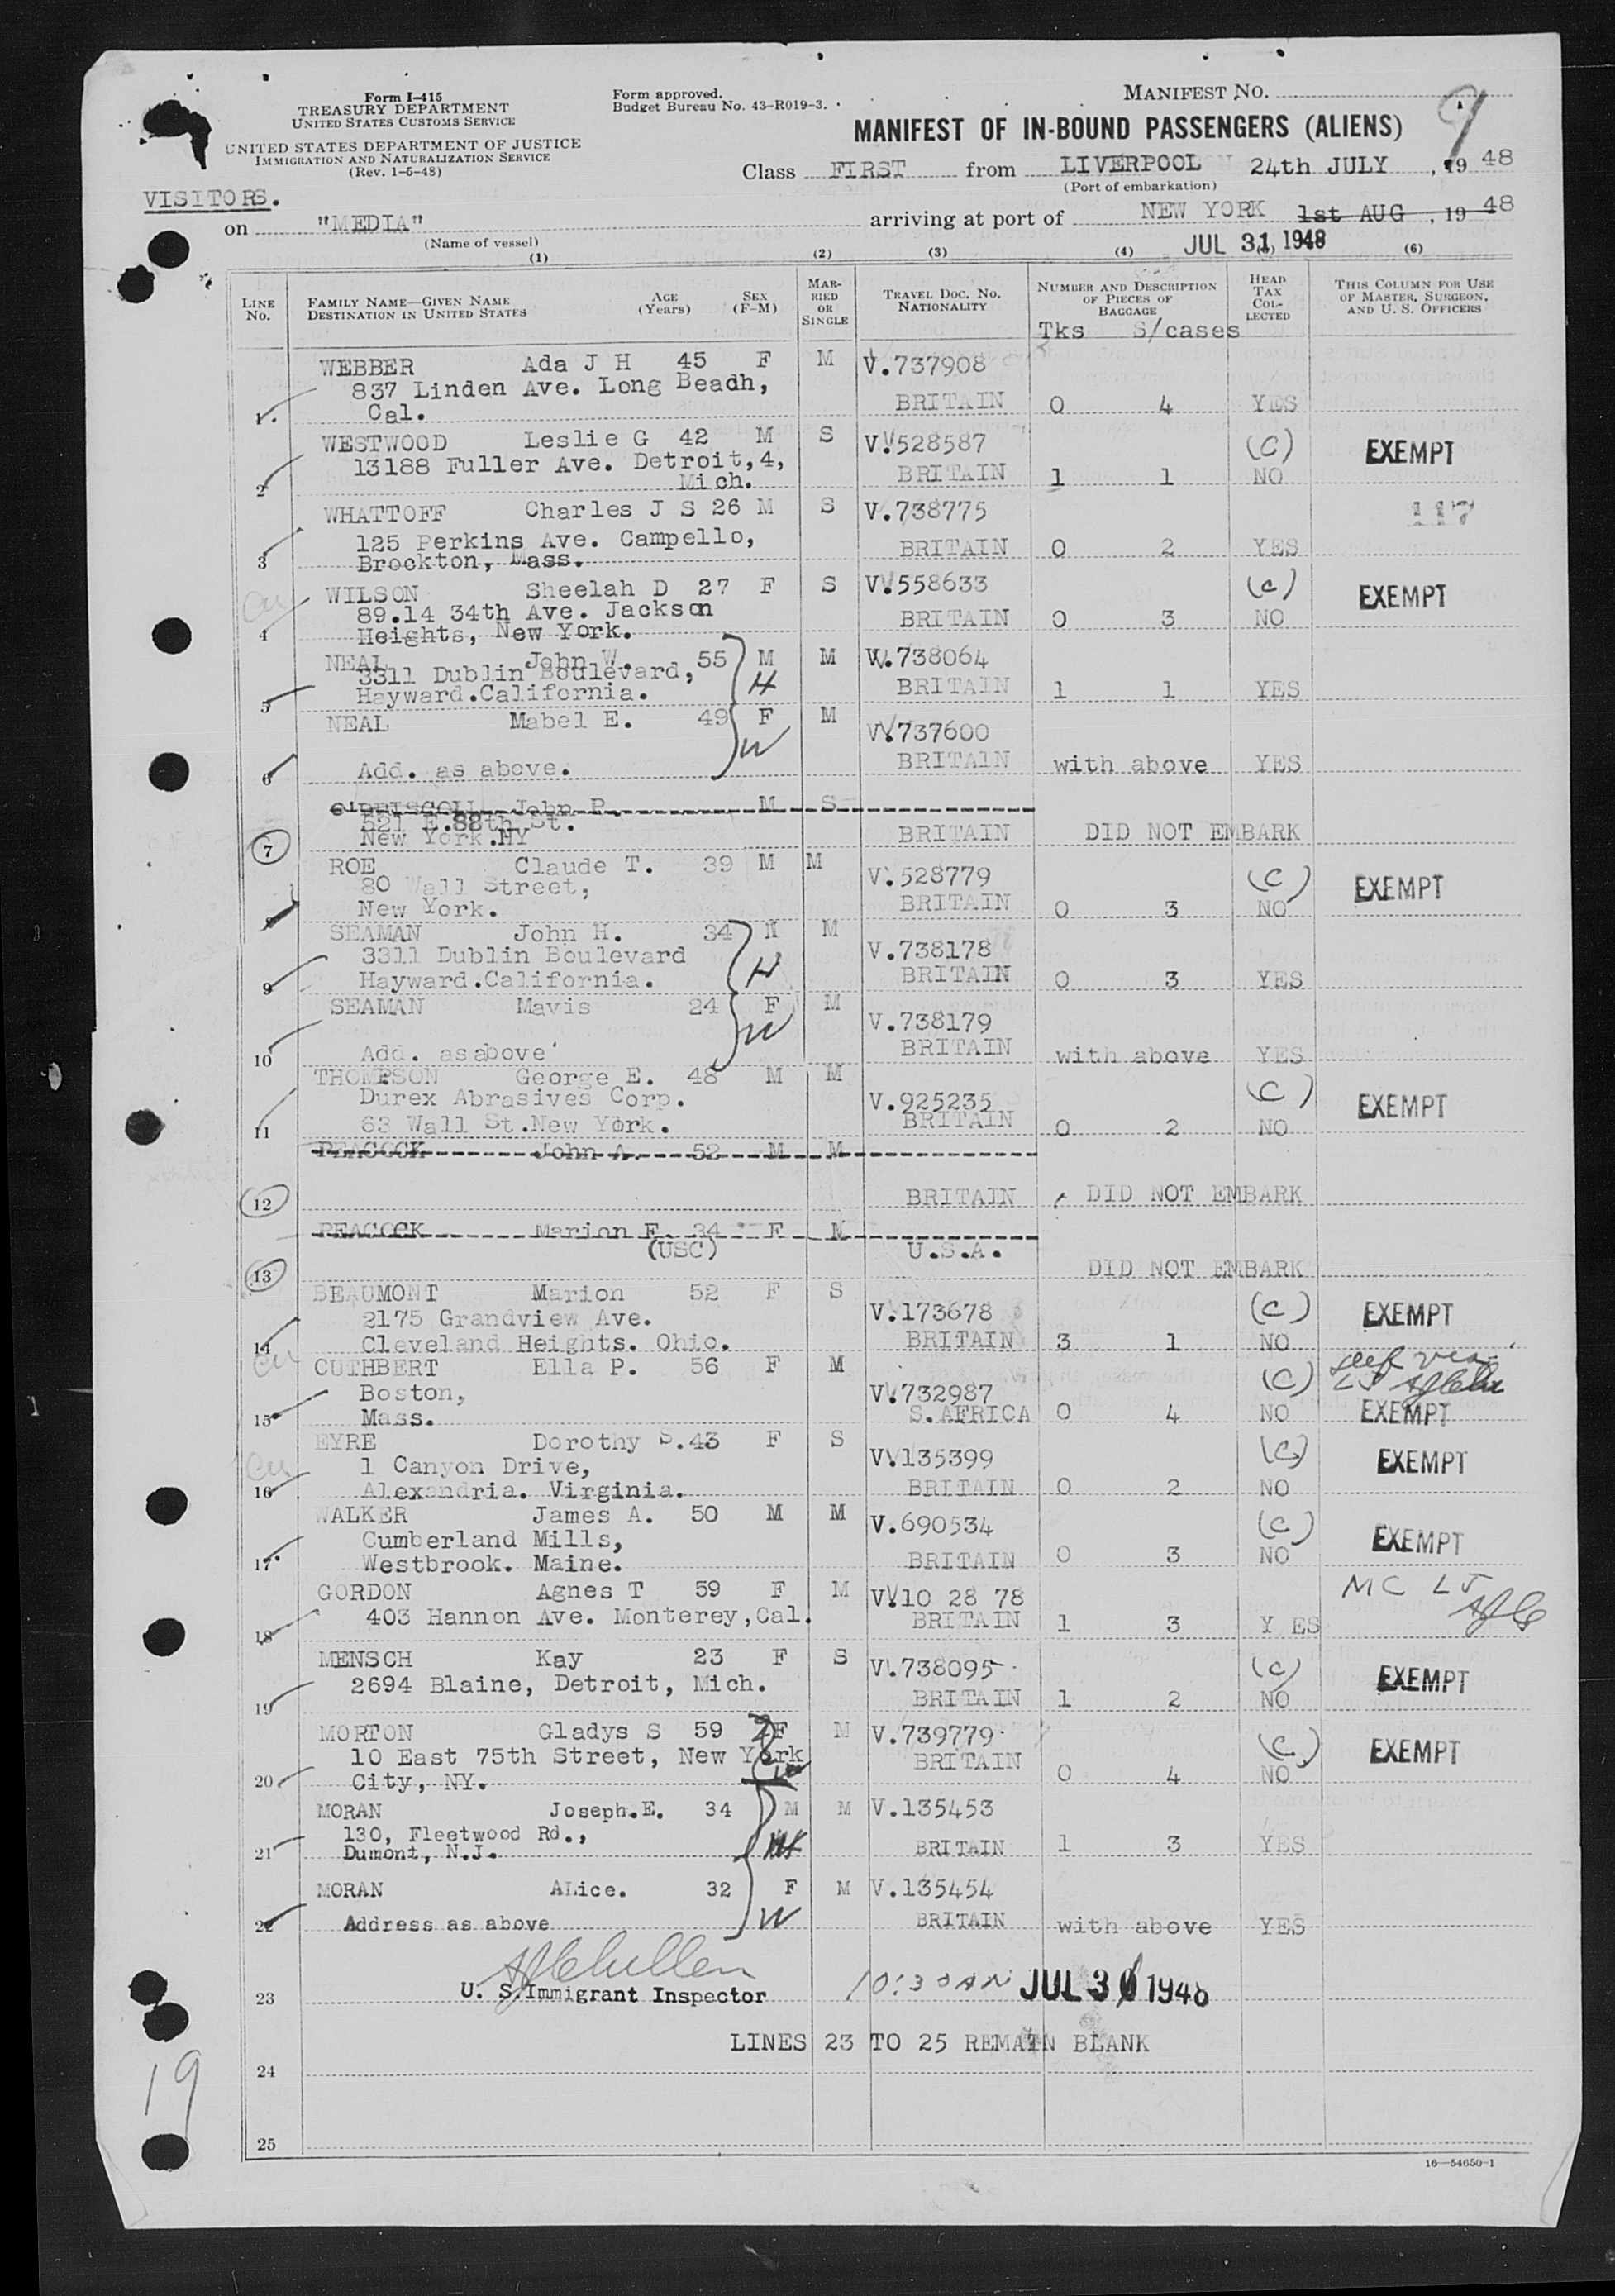 Form I-415
TREASURY DEPARTMENT
UNITED STATES CUSTOMS SERVICE
UNITED STATES DEPARTMENT OF JUSTICE
IMMIGRATION AND NATURALIZATION SERVICE
(Rev. 1-5-48)
Form approved.
Budget Bureau No. 43-R019-3.
MANIFEST NO.
9
MANIFEST OF IN-BOUND PASSENGERS (ALIENS)
Class FIRST from LIVERPOOL 24th JULY, 1948
(Port of embarkation)
VISITORS.
on "MEDIA" arriving at port of NEW YORK 1st AUG, 1948
(Name of vessel)
JUL 31 1948
(1) (2) (3) (4) (6)
LINE No.
FAMILY NAME—GIVEN NAME
DESTINATION IN UNITED STATES
AGE (Years)
SEX (F-M)
MARRIED OR SINGLE
TRAVEL DOC. NO.
NATIONALITY
NUMBER AND DESCRIPTION OF PIECES OF BAGGAGE
Tks S/cases
HEAD TAX COLLECTED
THIS COLUMN FOR USE OF MASTER, SURGEON, AND U. S. OFFICERS
WEBBER Ada J H 45 F M V.737908
837 Linden Ave. Long Beadh,
1 Cal. BRITAIN 0 4 YES
WESTWOOD Leslie G 42 M S V.528587 (C) EXEMPT
13188 Fuller Ave. Detroit,4,
2 Mich. BRITAIN 1 1 NO
WHATTOFF Charles J S 26 M S V.738775 117
125 Perkins Ave. Campello,
3 Brockton, Mass. BRITAIN 0 2 YES
WILSON Sheelah D 27 F S V.558633 (C) EXEMPT
89.14 34th Ave. Jackson
4 Heights, New York. BRITAIN 0 3 NO
NEAL John W. 55 M M V.738064
3311 Dublin Boulevard, H
5 Hayward.California. BRITAIN 1 1 YES
NEAL Mabel E. 49 F M V.737600
W
6 Add. as above. BRITAIN with above YES
O'DRISCOLL John P. M S
521 E.88th St.
7 New York.NY BRITAIN DID NOT EMBARK
ROE Claude T. 39 M M V.528779 (C) EXEMPT
80 Wall Street,
8 New York. BRITAIN 0 3 NO
SEAMAN John H. 34 M M V.738178
3311 Dublin Boulevard H
9 Hayward.California. BRITAIN 0 3 YES
SEAMAN Mavis 24 F M V.738179
W
10 Add. as above BRITAIN with above YES
THOMPSON George E. 48 M M V.925235 (C) EXEMPT
Durex Abrasives Corp.
11 63 Wall St.New York. BRITAIN 0 2 NO
PEACOCK John A. 52 M M
12 BRITAIN DID NOT EMBARK
PEACOCK Marion F. 34 F M
(USC) U.S.A.
13 DID NOT EMBARK
BEAUMONT Marion 52 F S V.173678 (C) EXEMPT
2175 Grandview Ave.
14 Cleveland Heights. Ohio. BRITAIN 3 1 NO
CUTHBERT Ella P. 56 F M V.732987 (C)
Boston,
15 Mass. S.AFRICA 0 4 NO EXEMPT
EYRE Dorothy S. 43 F S V.135399 (C) EXEMPT
1 Canyon Drive,
16 Alexandria. Virginia. BRITAIN 0 2 NO
WALKER James A. 50 M M V.690534 (C) EXEMPT
Cumberland Mills,
17 Westbrook. Maine. BRITAIN 0 3 NO
GORDON Agnes T 59 F M V.10 28 78 MC LJ
403 Hannon Ave. Monterey,Cal.
18 BRITAIN 1 3 Y ES
MENSCH Kay 23 F S V.738095 (C) EXEMPT
2694 Blaine, Detroit, Mich.
19 BRITAIN 1 2 NO
MORTON Gladys S 59 F M V.739779 (C) EXEMPT
10 East 75th Street, New York
20 City, NY. BRITAIN 0 4 NO
MORAN Joseph.E. 34 M M V.135453
130, Fleetwood Rd., H
21 Dumont, N.J. BRITAIN 1 3 YES
MORAN ALice. 32 F M V.135454
W
22 Address as above BRITAIN with above YES
23 U. S. Immigrant Inspector 10:30 AM JUL 30 1948
LINES 23 TO 25 REMAIN BLANK
24
25
19
16—54650-1